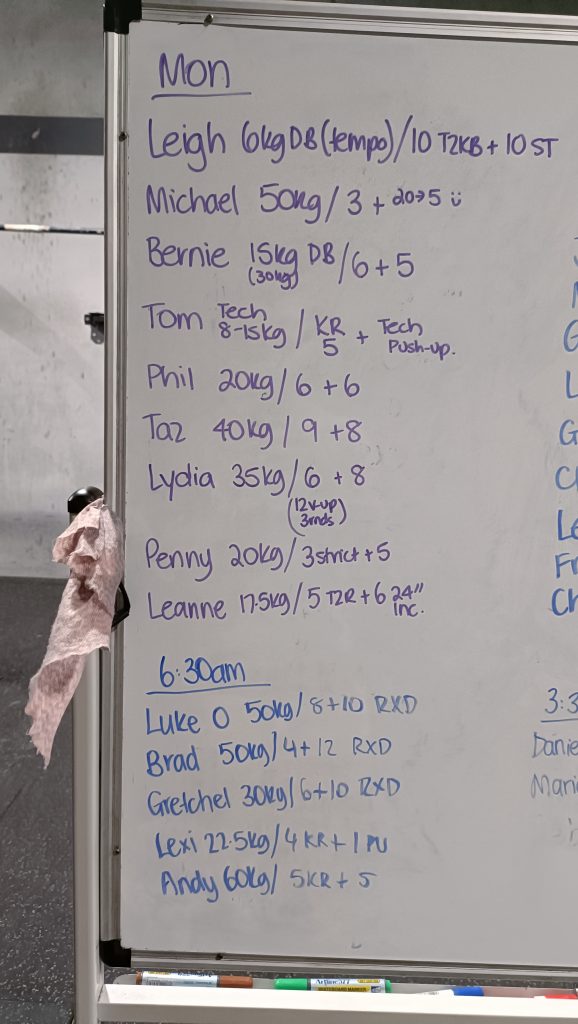 Mon
Leigh 6kg DB (tempo)/10 T2KB + 10 ST
Michael 50kg / 3 + 20→5 ü
Bernie 15kg DB / 6 + 5
(30kg)
Tom Tech 8-15kg / KR 5 + Tech Push-up.
Phil 20kg / 6 + 6
Taz 40kg / 9 + 8
Lydia 35kg / 6 + 8
(12 v-up 3rnds)
Penny 20kg / 3 strict + 5
Leanne 17.5kg / 5 T2R + 6 24" inc.
6:30am
Luke O 50kg / 8+10 RXD
Brad 50kg / 4+12 RXD
Gretchel 30kg / 6+10 RXD
Lexi 22.5kg / 4 KR + 1 PU
Andy 60kg / 5KR + 5
3:3
Danie
Mari
G
L
G
Le
Fr
Ch
Artline 577